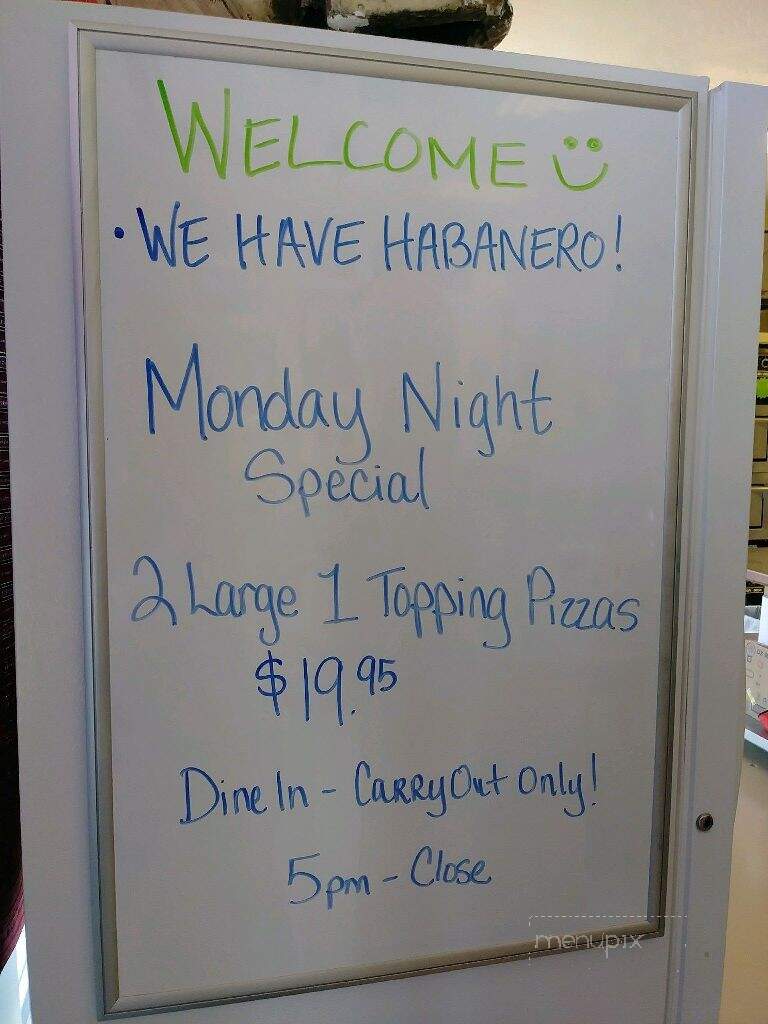 WELCOME
• WE HAVE HABANERO!
Monday Night
Special
2 Large 1 Topping Pizzas
$19.95
Dine In - Carry Out Only!
5pm - Close
menupix